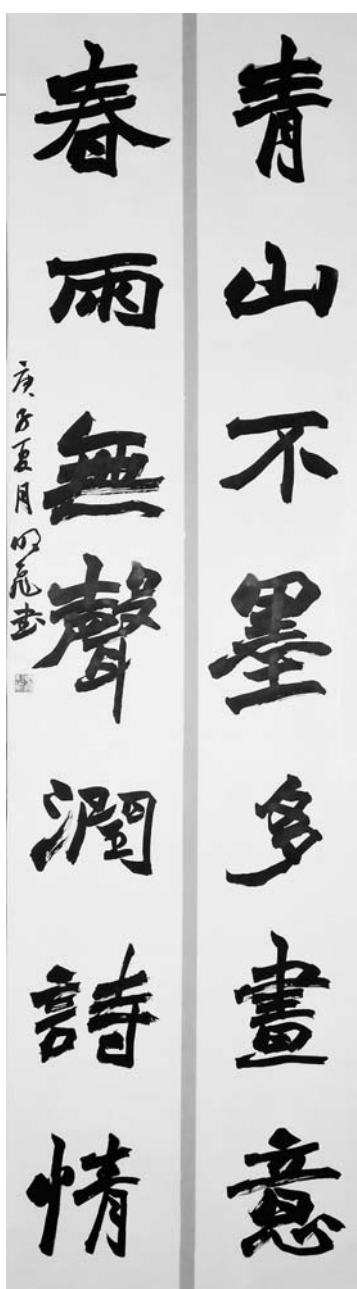 青山不墨多畫意
春雨無聲潤詩情
庚子夏月明飛書